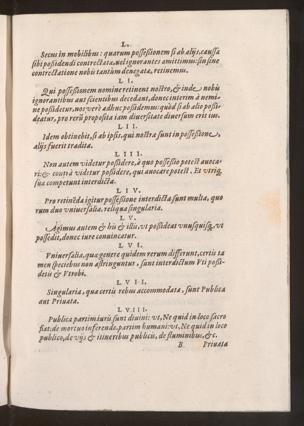 L.
Secus in mobilibus: quarum possessionem si ab alijs, caussa
sibi possidendi contrectata, vel ignorantes amittimus: sin sine
contrectatione nobis tantùm denegata, retinemus.
LI.
Qui possessionem nomine retinent nostro, & inde nobis
ignorantibus aut scientibus decedant, donec interim à nemi-
ne possidetur, nos verè adhuc possidemus: quòd si ab alio possi-
deatur, pro rerũ proposita iam diuersitate diuersum erit ius.
LII.
Idem obtinebit, si ab ipsis, qui nostra sunt in possessione,
alijs fuerit tradita.
LIII.
Non autem videtur possidere, à quo possessio potest auoca-
ri: & cõtrà videtur possidere, qui auocare potest. Et vtrig,
sua competunt interdicta.
LIV.
Pro retinẽda igitur possessione interdicta sunt multa, quo
rum duo vniuersalia, reliqua singularia.
LV.
Agimus autem & his & illis, vt possideat vnusquisq, vt
possedit, donec iure conuincatur.
LVI.
Vniuersalia, quæ genere quidem rerum differunt, certis ta
men speciebus non astringuntur, sunt interdictum Vti possi-
detis & Vtrobi.
LVII.
Singularia, quæ certis rebus accommodata, sunt Publica
aut Priuata.
LVIII.
Publica partim iuris sunt diuini: vt, Ne quid in loco sacro
fiat: de mortuo inferendo. partim humani: vt, Ne quid in loco
publico, de vijs & itineribus publicis, de fluminibus, &c.
B Priuata